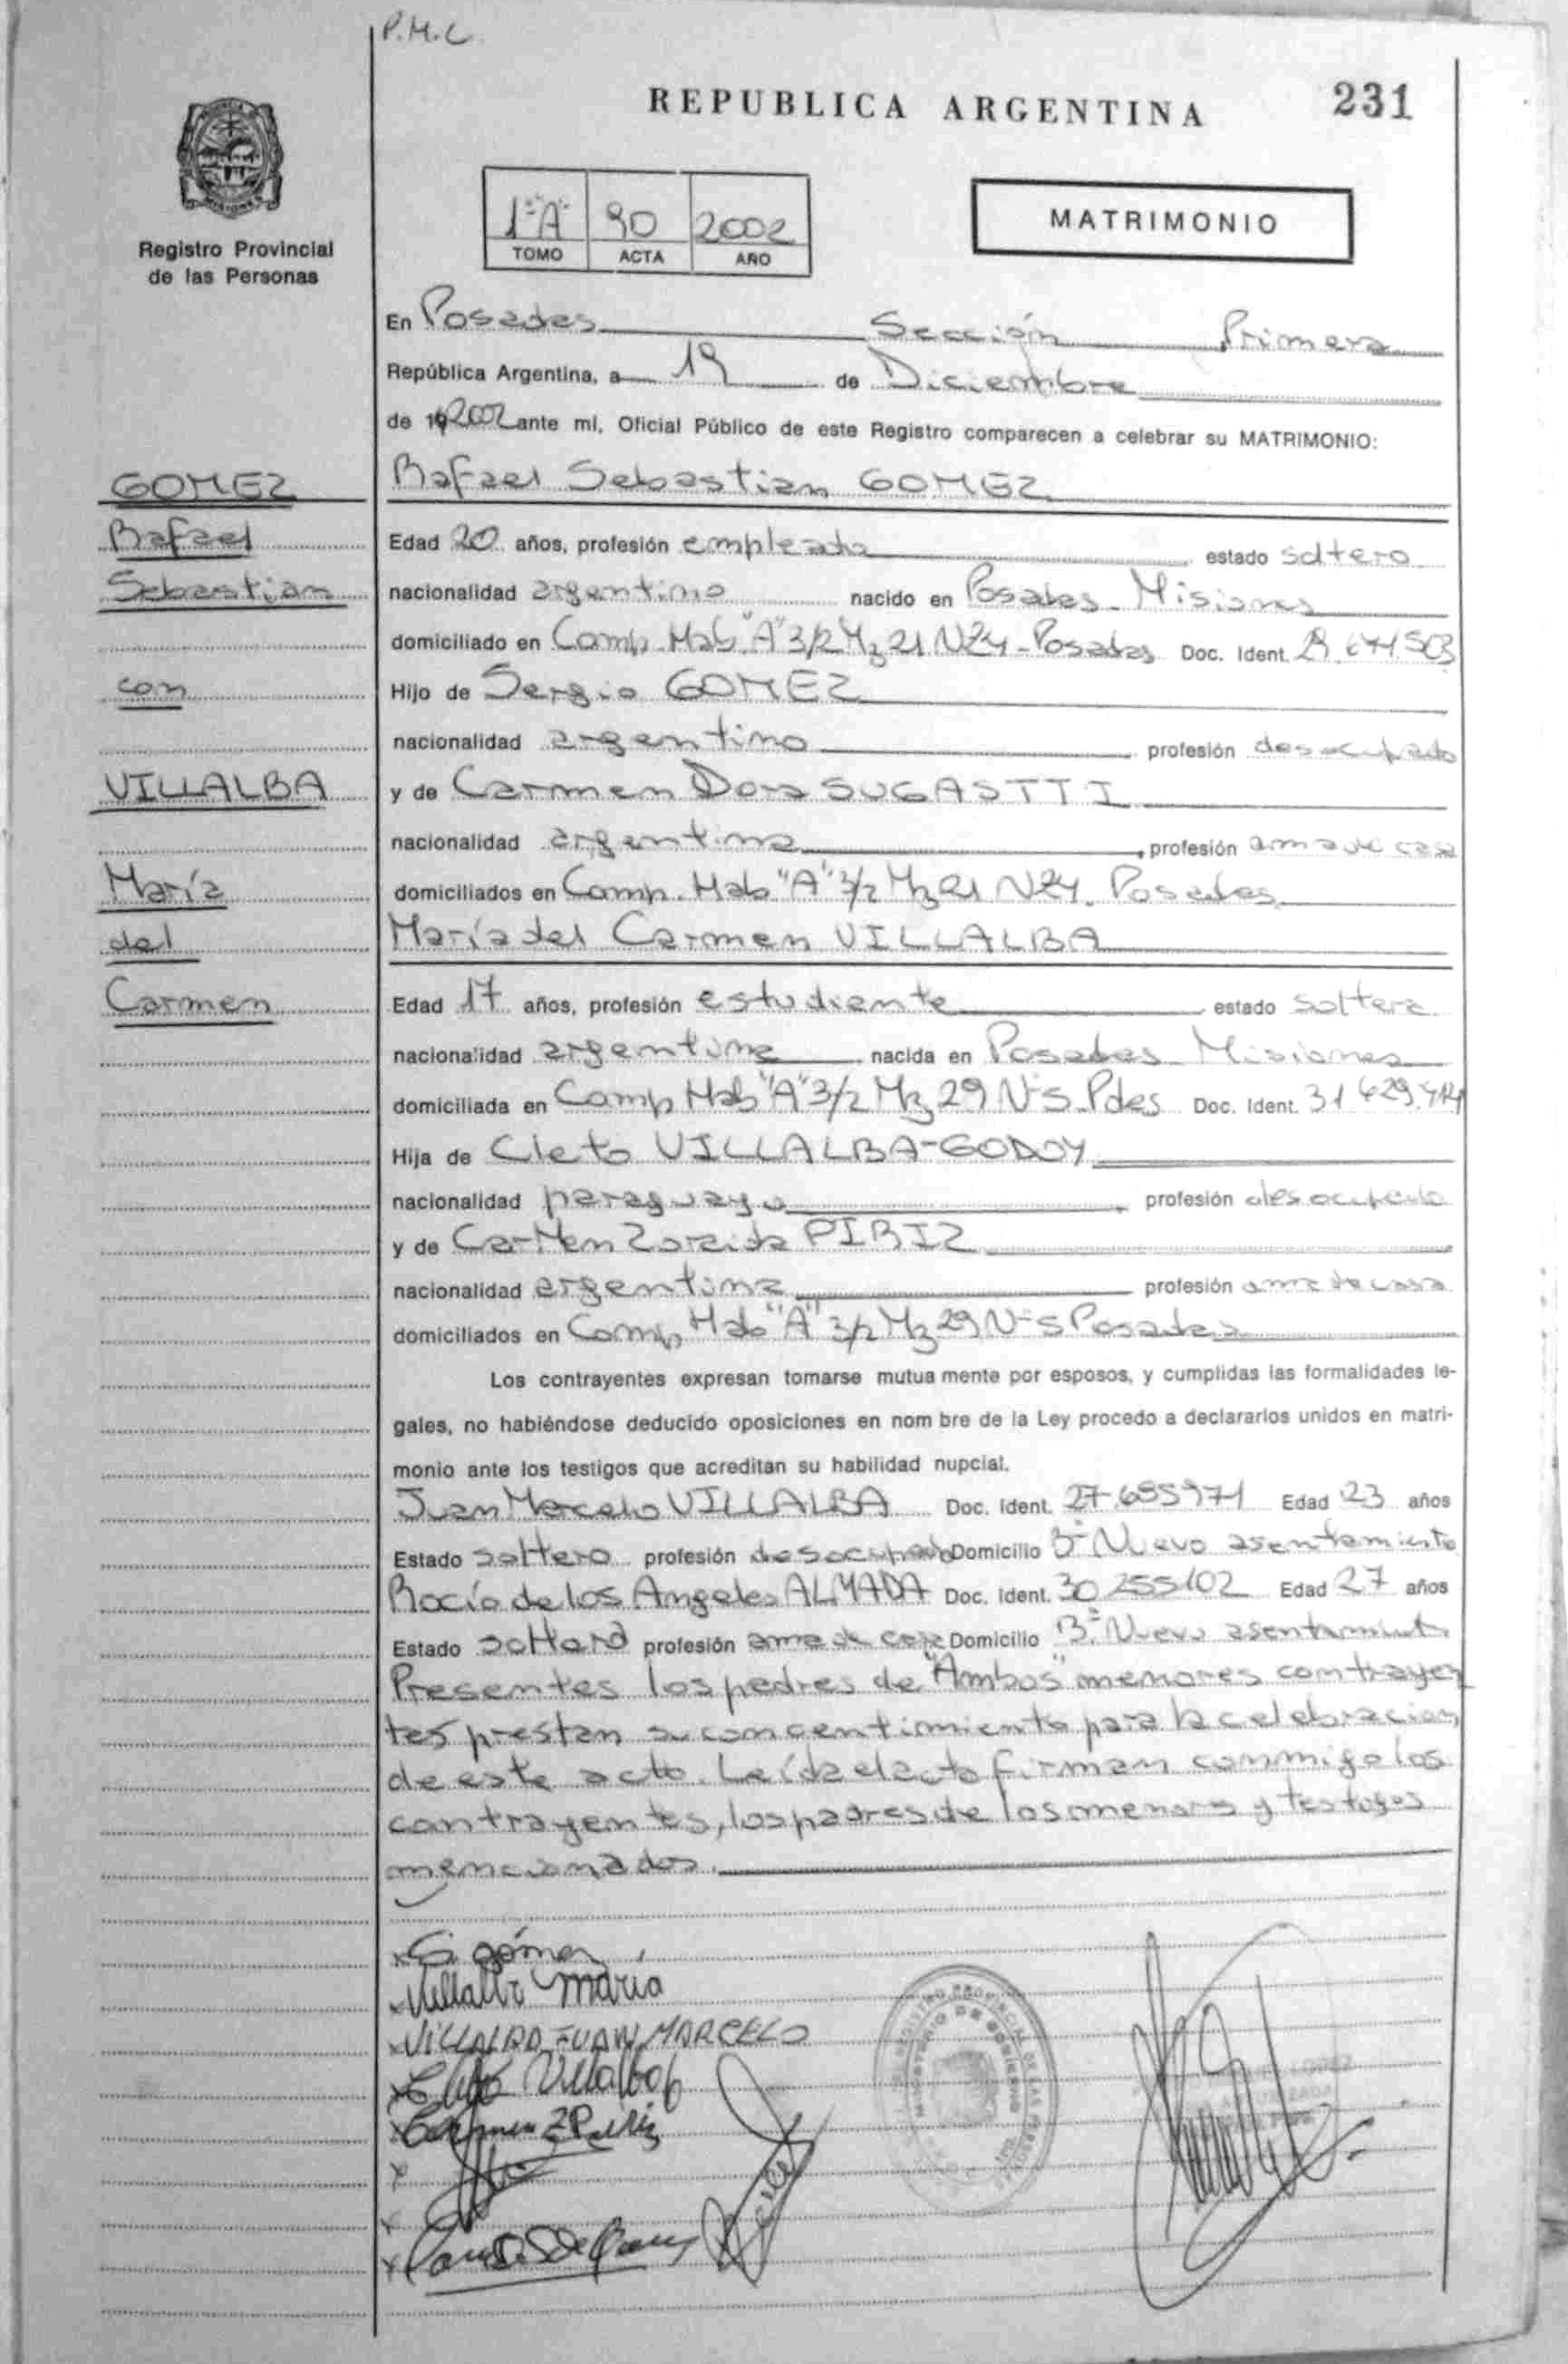 P.M.C.
REPUBLICA ARGENTINA 231
1ªA 90 2002
TOMO ACTA AÑO
MATRIMONIO
Registro Provincial
de las Personas
En Posadas Sección Primera
República Argentina, a 19 de Diciembre
de 192002 ante mí, Oficial Público de este Registro comparecen a celebrar su MATRIMONIO:
GOMEZ
Rafael
Sebastian
con
VILLALBA
María
del
Carmen
Rafael Sebastian GOMEZ
Edad 20 años, profesión empleado estado soltero
nacionalidad argentino nacido en Posadas Misiones
domiciliado en Comp. Hab "A" 3/2 Mz 21 N24 - Posadas Doc. Ident.
Hijo de Sergio GOMEZ
nacionalidad argentino profesión desocupado
y de Carmen Dora SUGASTTI
nacionalidad argentina, profesión ama de casa
domiciliados en Comp. Hab "A" 3/2 Mz 21 N24. Posadas
María del Carmen VILLALBA
Edad 17 años, profesión estudiante estado soltera
nacionalidad argentina nacida en Posadas Misiones
domiciliada en Comp Hab "A" 3/2 Mz 29 Nº5 Pdas Doc. Ident. 31 629.414
Hija de Cleto VILLALBA-GODOY
nacionalidad paraguayo, profesión desocupado
y de Carmen Zoraida PIRIZ
nacionalidad argentina profesión ama de casa
domiciliados en Comp Hab "A" 3/2 Mz 29 Nº5 Posadas
Los contrayentes expresan tomarse mutua mente por esposos, y cumplidas las formalidades le-
gales, no habiéndose deducido oposiciones en nom bre de la Ley procedo a declararlos unidos en matri-
monio ante los testigos que acreditan su habilidad nupcial.
Juan Marcelo VILLALBA Doc. Ident. 27.685971 Edad 23 años
Estado soltero profesión desocupado Domicilio Bº Nuevo asentamiento
Rocío de los Angeles ALMADA Doc. Ident. 30 255102 Edad 27 años
Estado soltera profesión ama de casa Domicilio Bº Nuevo asentamiento
Presentes los padres de "Ambos" menores contrayen
tes prestan su concentimiento para la celebracion
de este acto. Leída el acta firman conmigo los
contrayentes, los padres de los menores y testigos
mencionados.
S. gómez
Villalba maria
VILLALBA JUAN MARCELO
Cleto Villalba
Carmen Z Piriz
Rocío
REGISTRO PROVINCIAL DE LAS PERSONAS
MINISTERIO DE GOBIERNO